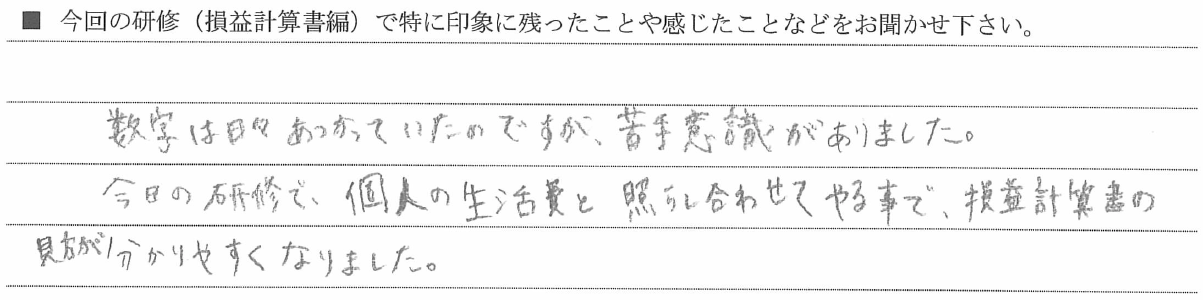 ■ 今回の研修（損益計算書編）で特に印象に残ったことや感じたことなどをお聞かせ下さい。
数字は日々あつかっていたのですが、苦手意識がありました。
今日の研修で、個人の生活費と照らし合わせてやる事で、損益計算書の
見方が分かりやすくなりました。